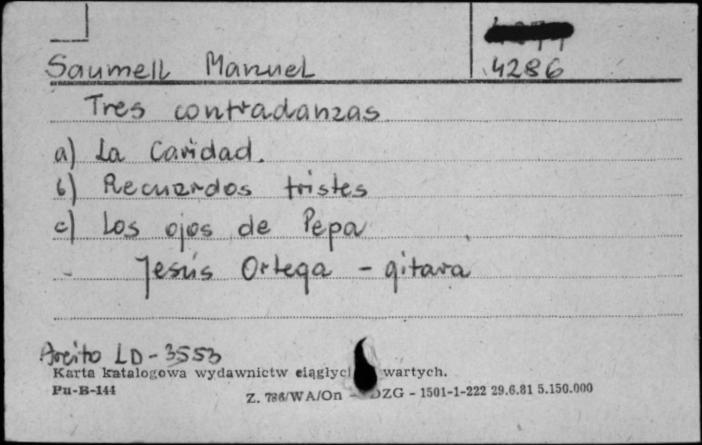 4286
Saumell Manuel
Tres contradanzas
a) La Caridad.
b) Recuerdos tristes
c) Los ojos de Pepa
Jesús Ortega - gitara
Areito LD-3553
Karta katalogowa wydawnictw ciągłyc wartych.
Pu-B-144
Z. 786/WA/On - DZG - 1501-1-222 29.6.81 5.150.000